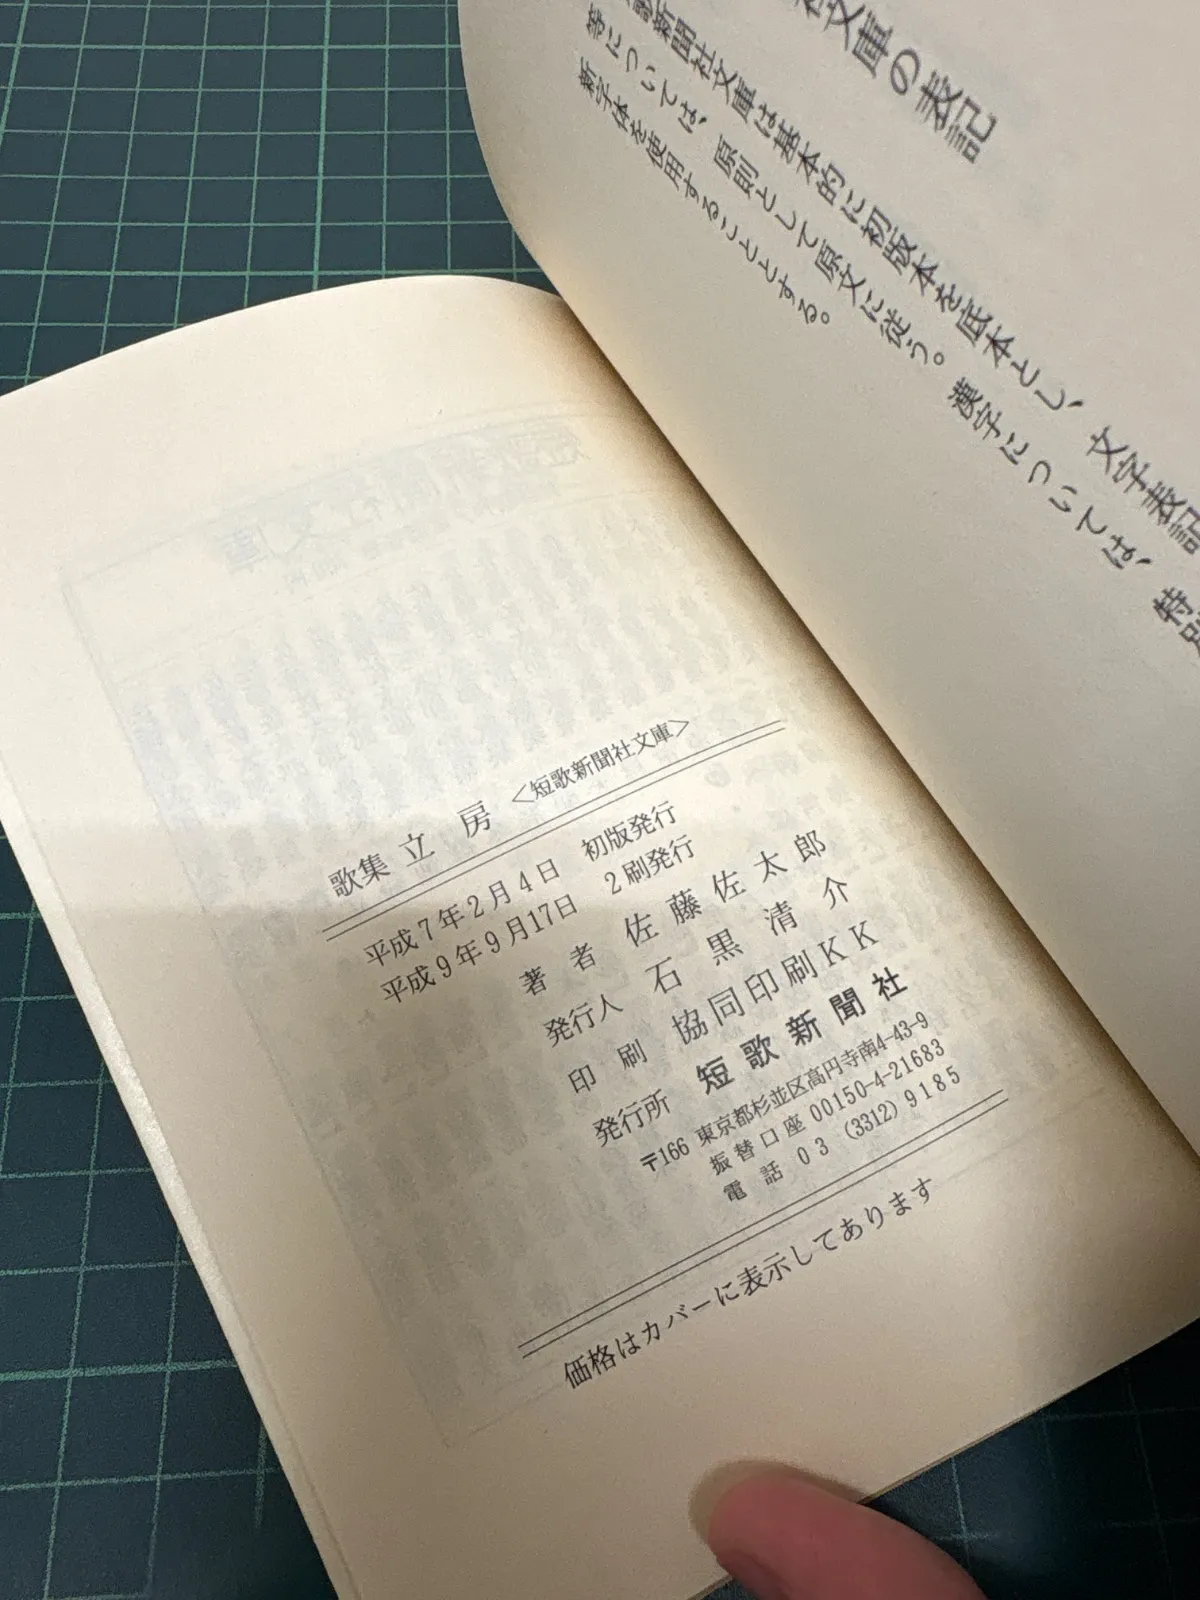 社文庫の表記
歌新聞社文庫は基本的に初版本を底本とし、文字表記
等については、原則として原文に従う。漢字については、特別
新字体を使用することとする。
歌集 立房 〈短歌新聞社文庫〉
平成7年2月4日 初版発行
平成9年9月17日 2刷発行
著者 佐藤佐太郎
発行人 石黒清介
印刷 協同印刷KK
発行所 短歌新聞社
〒166 東京都杉並区高円寺南4-43-9
振替口座 00150-4-21683
電話 03 (3312) 9185
価格はカバーに表示してあります